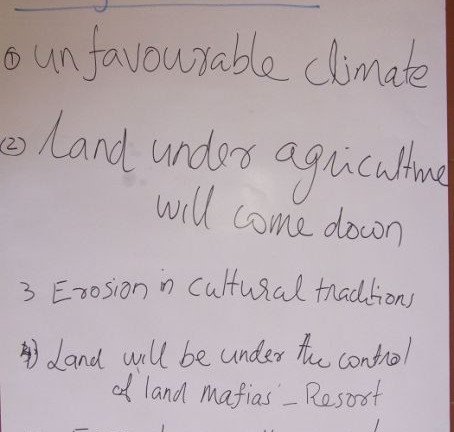 ① unfavourable climate
② Land under agriculture
will come down
3 Erosion in cultural traditions
4) Land will be under the control
of 'land mafias' - Resort